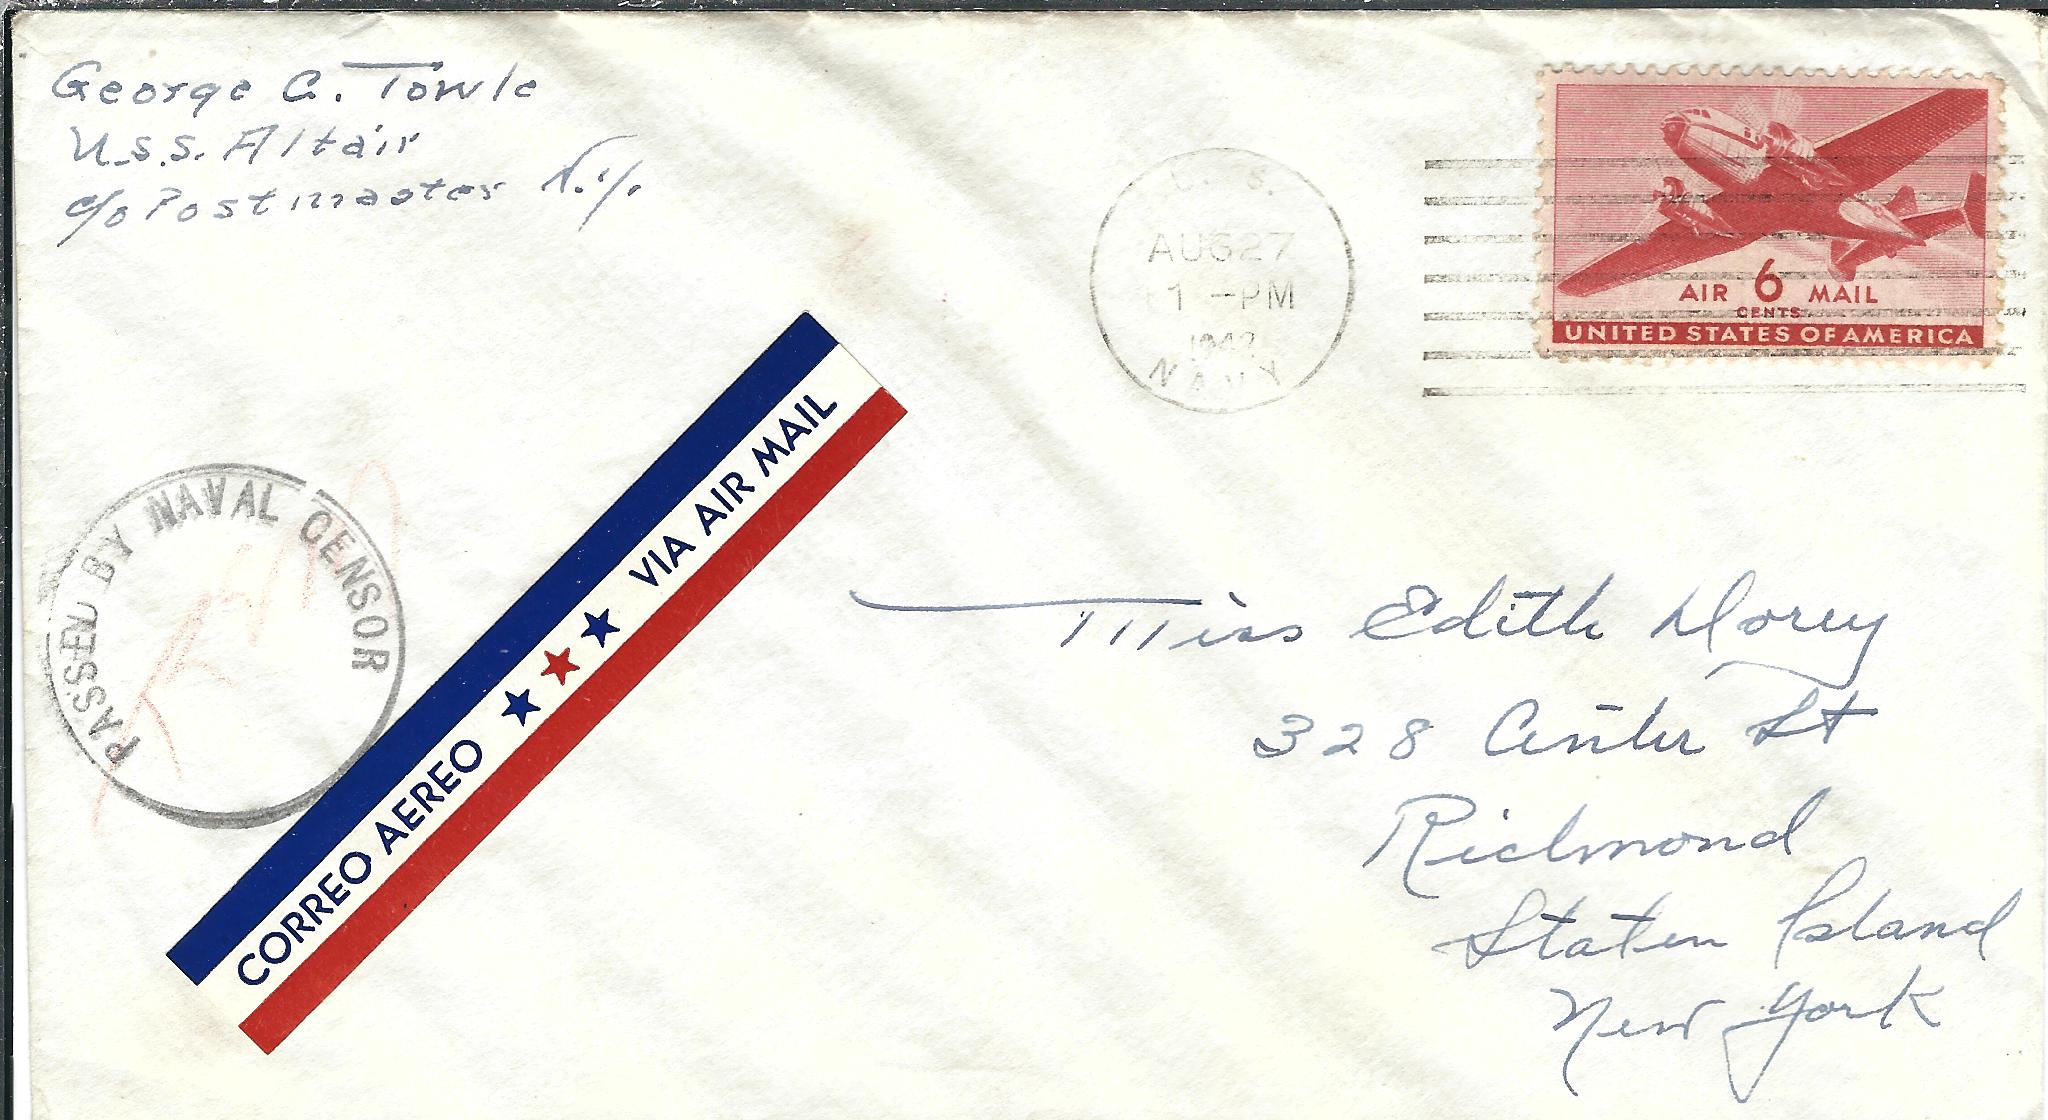 George C. Towle
U.S.S. Altair
c/o Postmaster N.Y.
U. S.
AUG 27
1 -PM
1942
NAVY
AIR 6 MAIL
CENTS
UNITED STATES OF AMERICA
PASSED BY NAVAL CENSOR
CORREO AEREO ★★★ VIA AIR MAIL
Miss Edith Morey
328 Center St
Richmond
Staten Island
New York